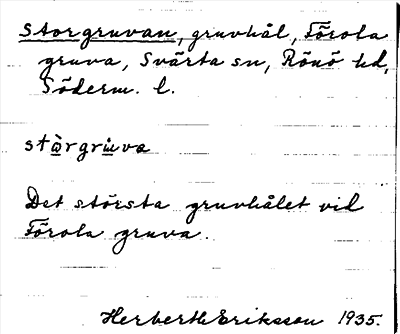 Storgruvan, gruvhål, Förola
gruva, Svärta sn, Rönö hd,
Söderm. l.
stòrgrùva
Det största gruvhålet vid
Förola gruva.
Herberth Eriksson 1935.